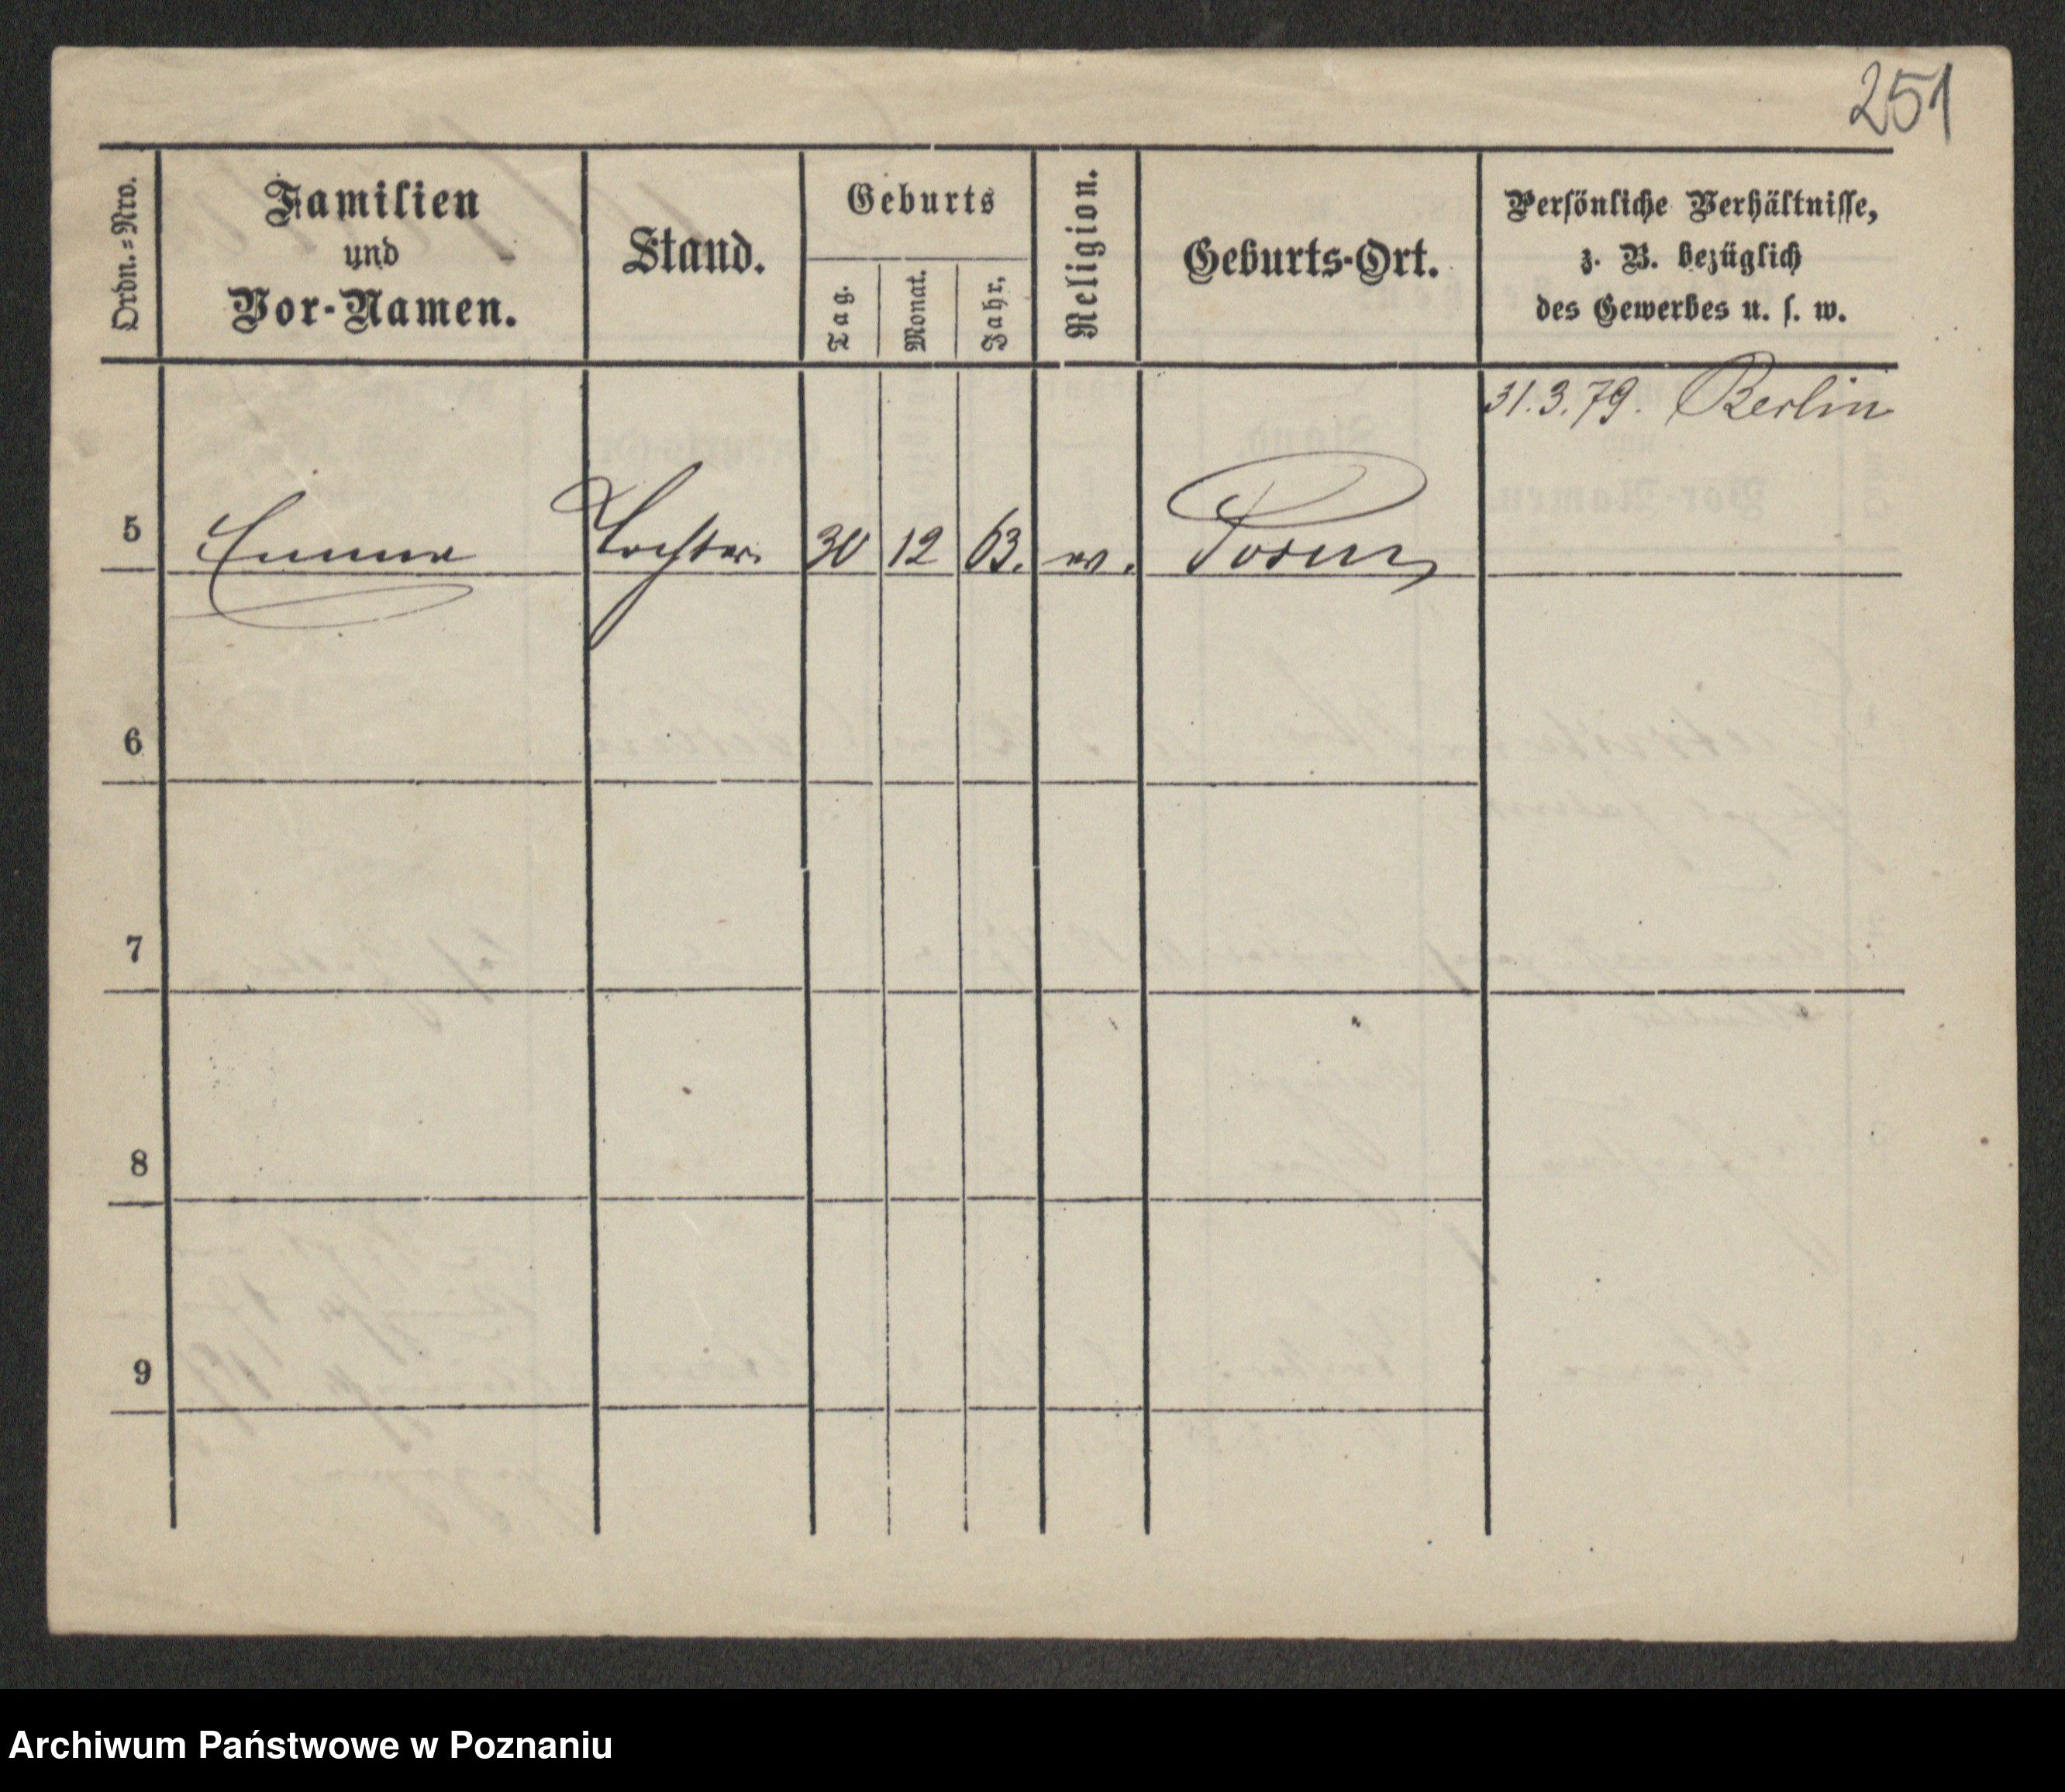 251
Ordn.=Nro.
Familien
und
Vor-Namen.
Stand.
Geburts
Tag.
Monat.
Jahr.
Religion.
Geburts-Ort.
Persönliche Verhältnisse,
z. B. bezüglich
des Gewerbes u. s. w.
31.3.79. Berlin
5 Emma Tochter 30 12 63. Posen
6
7
8
9
Archiwum Państwowe w Poznaniu